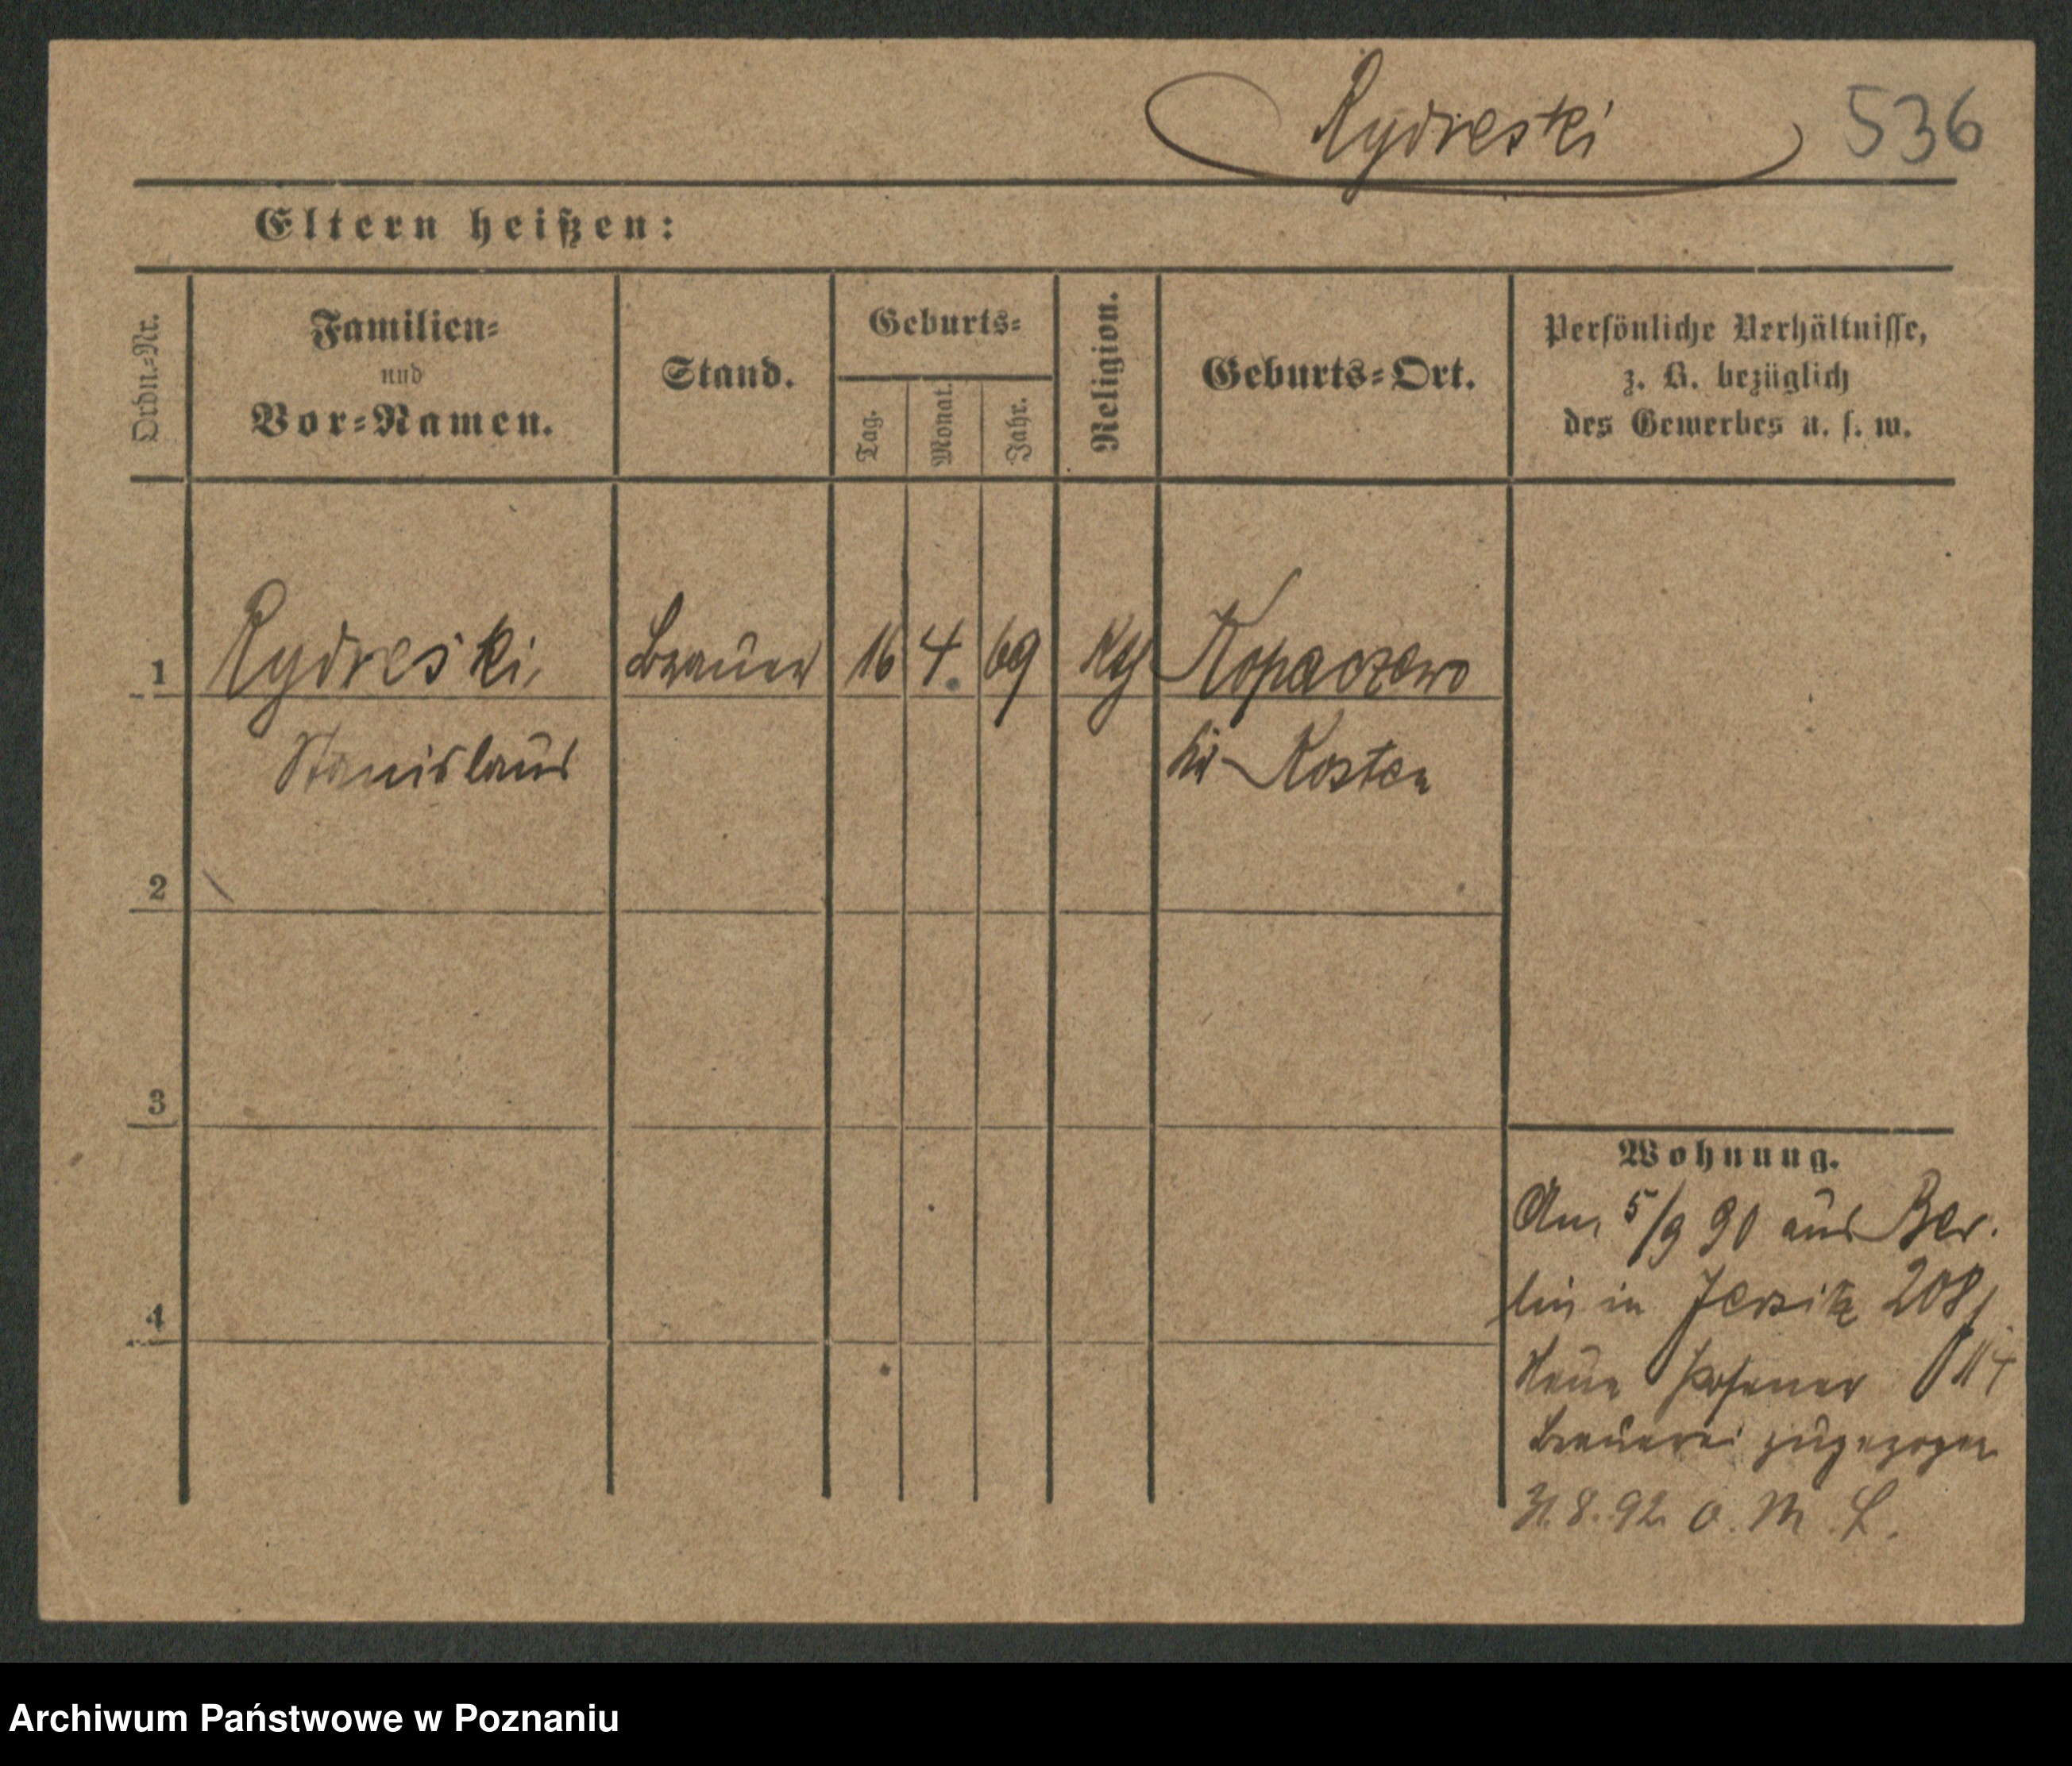 Rydreski 536
Eltern heißen:
Ordn.=Nr. Familien= und Vor=Namen. Stand. Geburts= Tag. Monat. Jahr. Religion. Geburts=Ort. Persönliche Verhältnisse, z. B. bezüglich des Gewerbes u. s. w.
1 Rydreski, Brauer 16 4. 69 Kth Kopaczewo
Stanislaus Kr Kosten
2
3
4
Wohnung.
Am 5/9 90 aus Ber.
lin in Jersitz 208,
Neue Posener
Brauerei zugezogen
31.8.92 a. M. L.
Archiwum Państwowe w Poznaniu